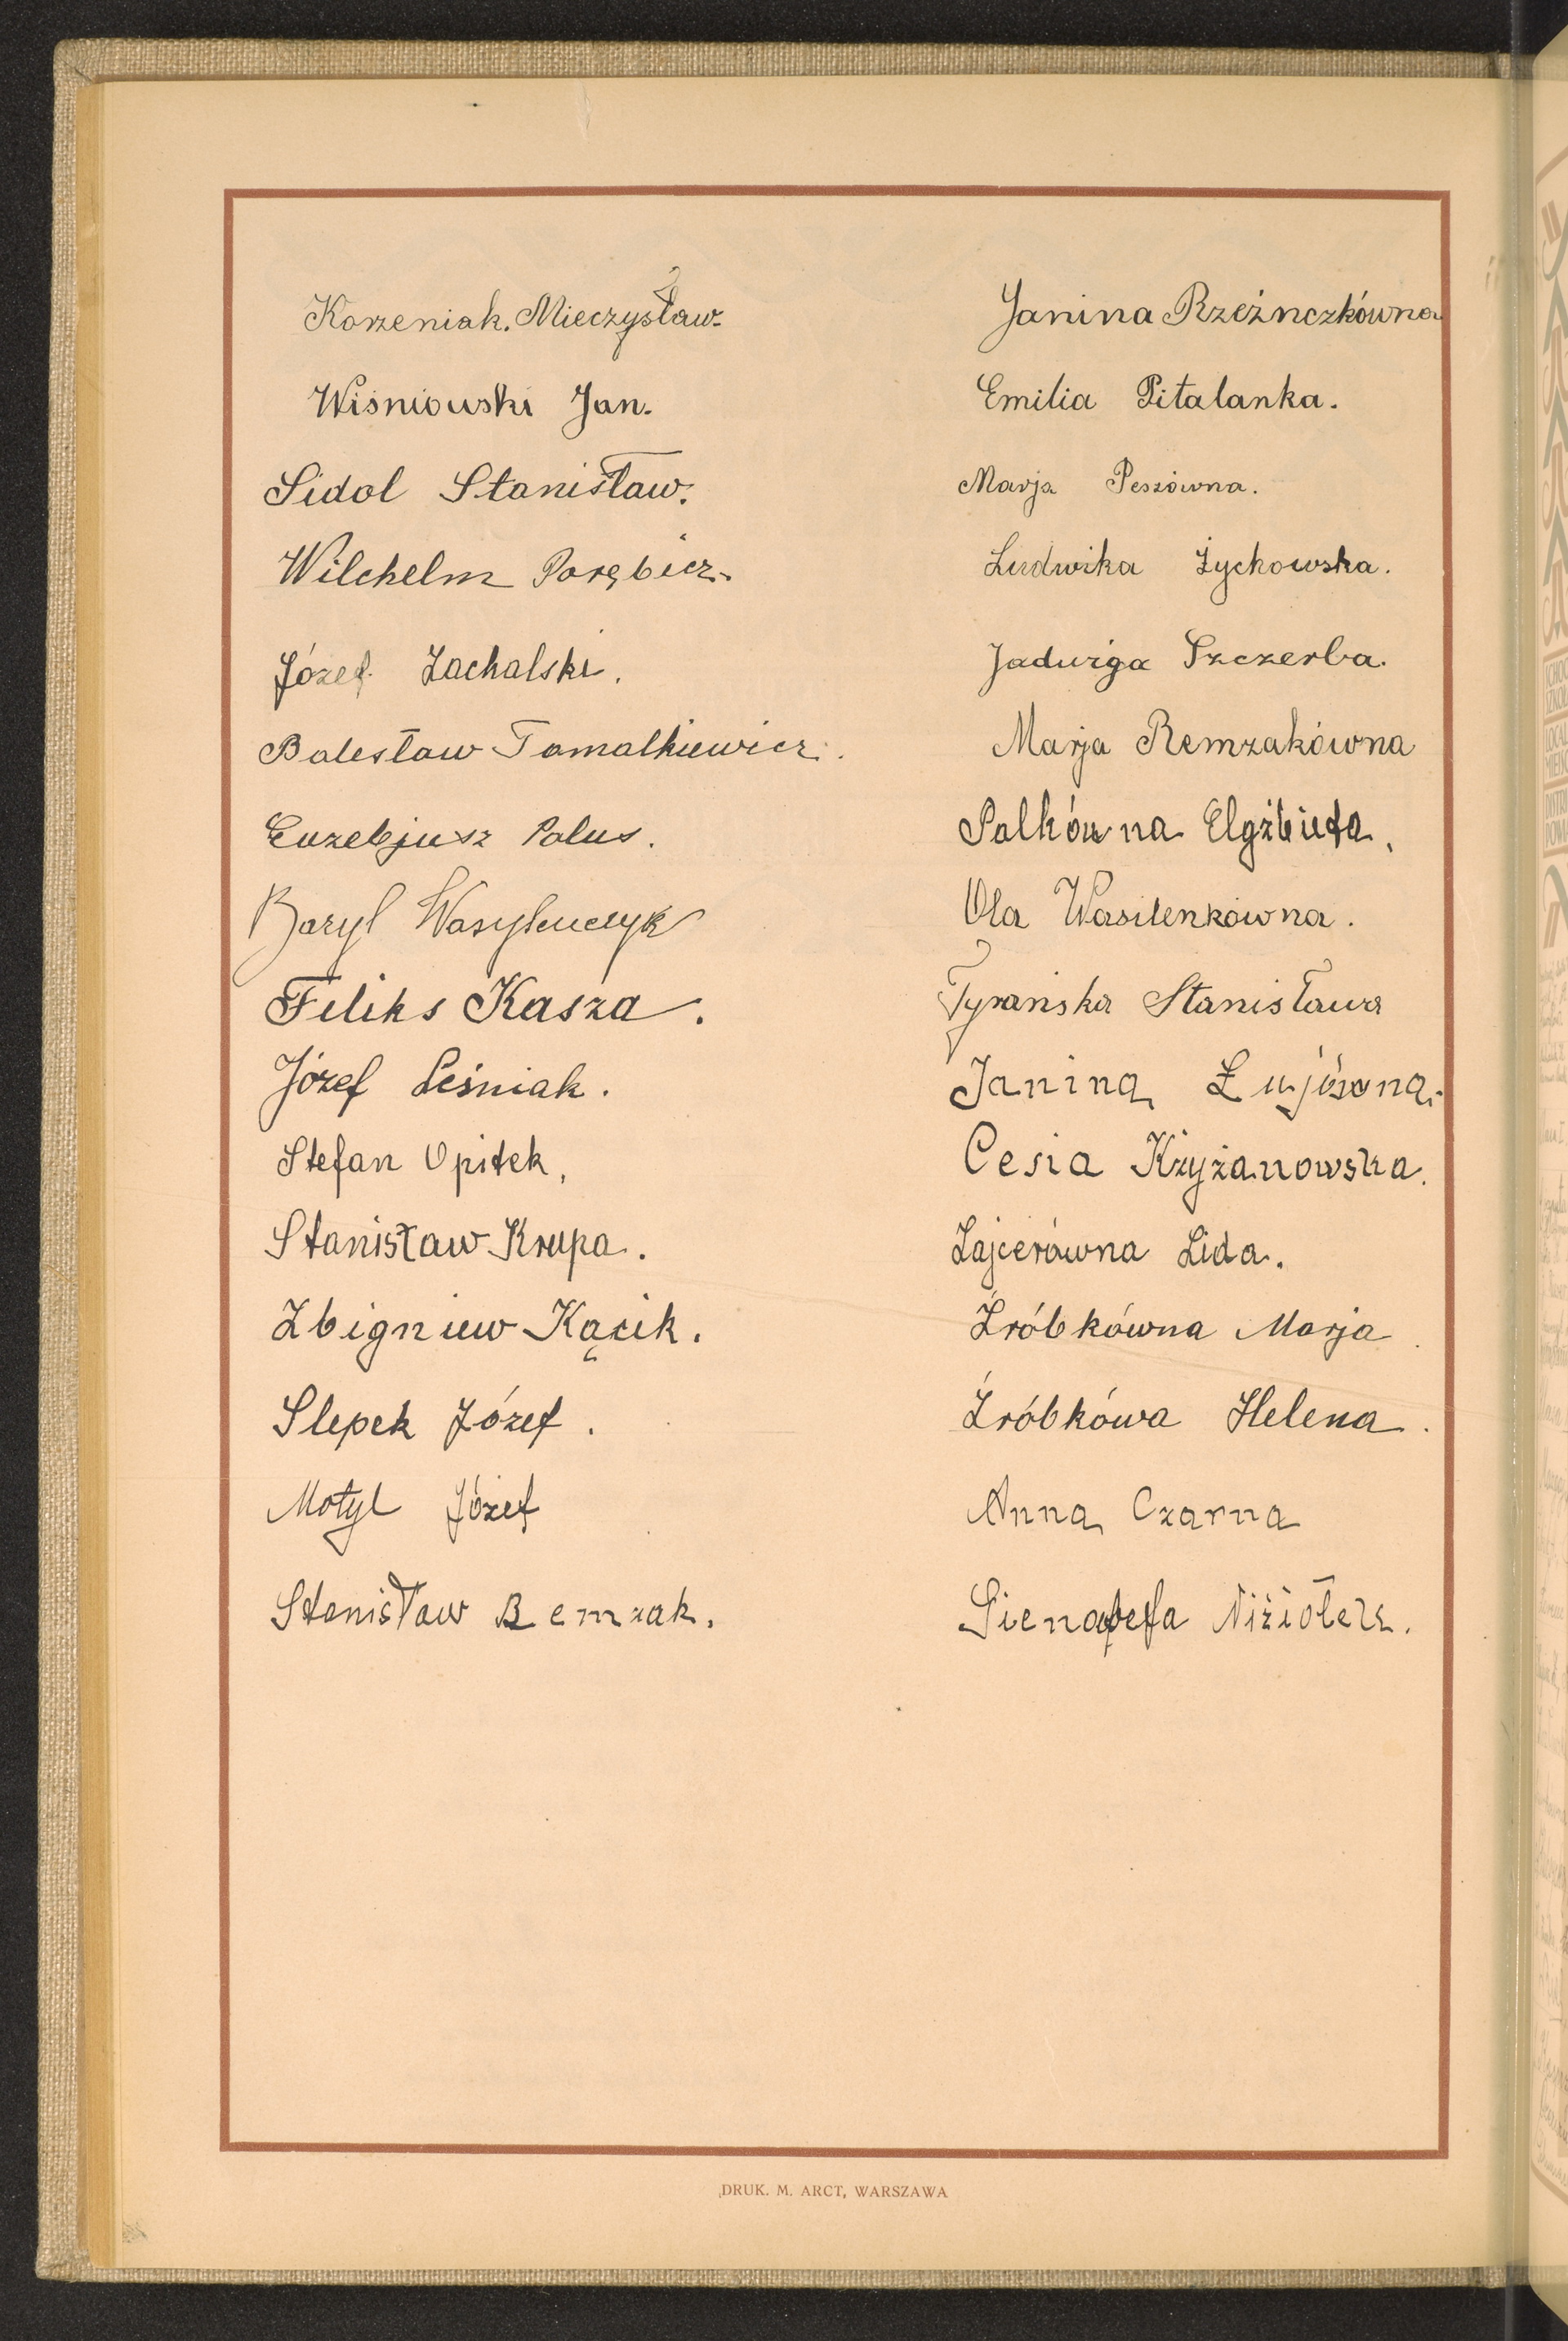 Korzeniak. Mieczysław.
Wiśniowski Jan.
Sidol Stanisław.
Wilchelm Porębicz.
Józef Zachalski.
Bolesław Tomalkiewicz.
Euzebjusz Polus.
Bazyl Wasylenczyk
Feliks Kasza.
Józef Leśniak.
Stefan Opitek.
Stanisław Krupa.
Zbigniew Kącik.
Slepek Józef.
Motyl Józef
Stanisław Remzak.
Janina Rzeźnczkówna
Emilia Pitalanka.
Marja Peszówna.
Ludwika Żychowska.
Jadwiga Szczerba.
Marja Remzakówna
Polkówna Elgżbieta.
Ola Wasilenkówna.
Tyrańska Stanisława
Janina Łujówna.
Cesia Krzyżanowska.
Zajcerówna Lida.
Źróbkówna Marja.
Źróbkówa Helena.
Anna Czarna
Niziołek.
DRUK. M. ARCT, WARSZAWA